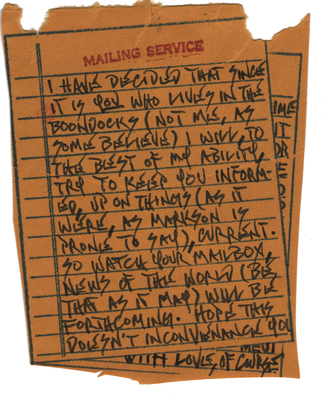 MAILING SERVICE
I HAVE DECIDED THAT SINCE
IT IS YOU WHO LIVES IN THE
BOONDOCKS (NOT ME, AS
SOME BELIEVE) I WILL, TO
THE BEST OF MY ABILITY,
TRY TO KEEP YOU INFORM-
ED, UP ON THINGS (AS IT
WERE, AS MARKSON IS
PRONE TO SAY), CURRENT.
SO WATCH YOUR MAILBOX,
NEWS OF THE WORLD (BE
THAT AS IT MAY) WILL BE
FORTHCOMING. HOPE THIS
DOESN'T INCONVIENANCE YOU
WITH LOVE, OF COURSE